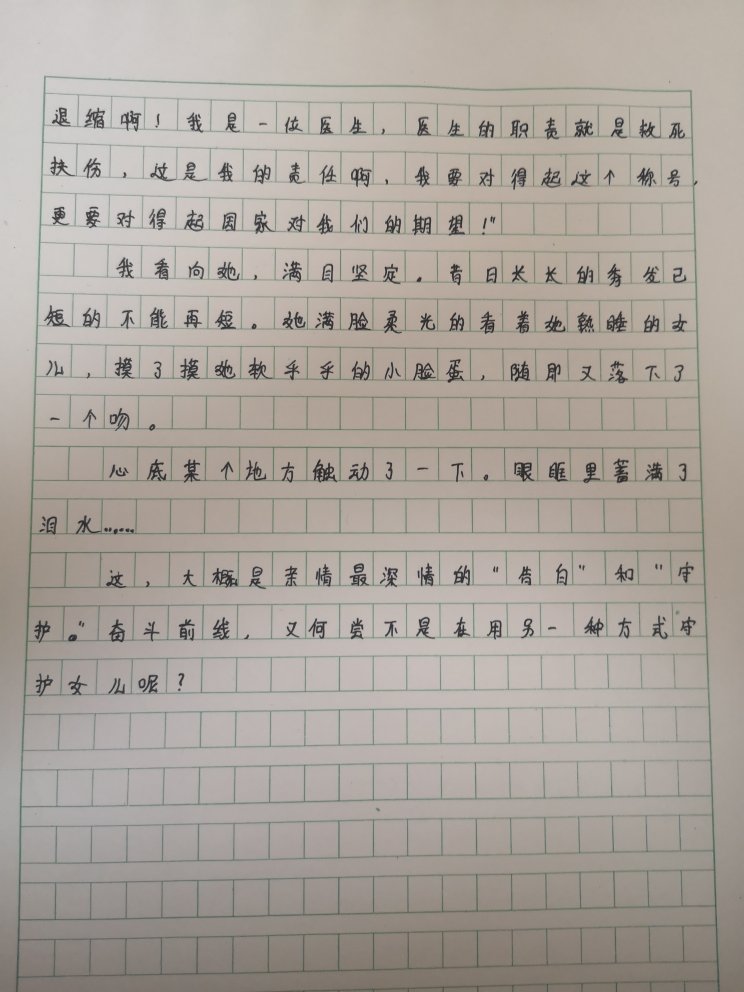 退缩啊！我是一位医生，医生的职责就是救死
扶伤，这是我的责任啊，我要对得起这个称号，
更要对得起国家对我们的期望！”
我看向她，满目坚定。昔日长长的秀发已
短的不能再短。她满脸柔光的看着她熟睡的女
儿，摸了摸她软乎乎的小脸蛋，随即又落下了
一个吻。
心底某个地方触动了一下。眼眶里蓄满了
泪水……
这，大概是亲情最深情的“告白”和“守
护。”奋斗前线，又何尝不是在用另一种方式守
护女儿呢？